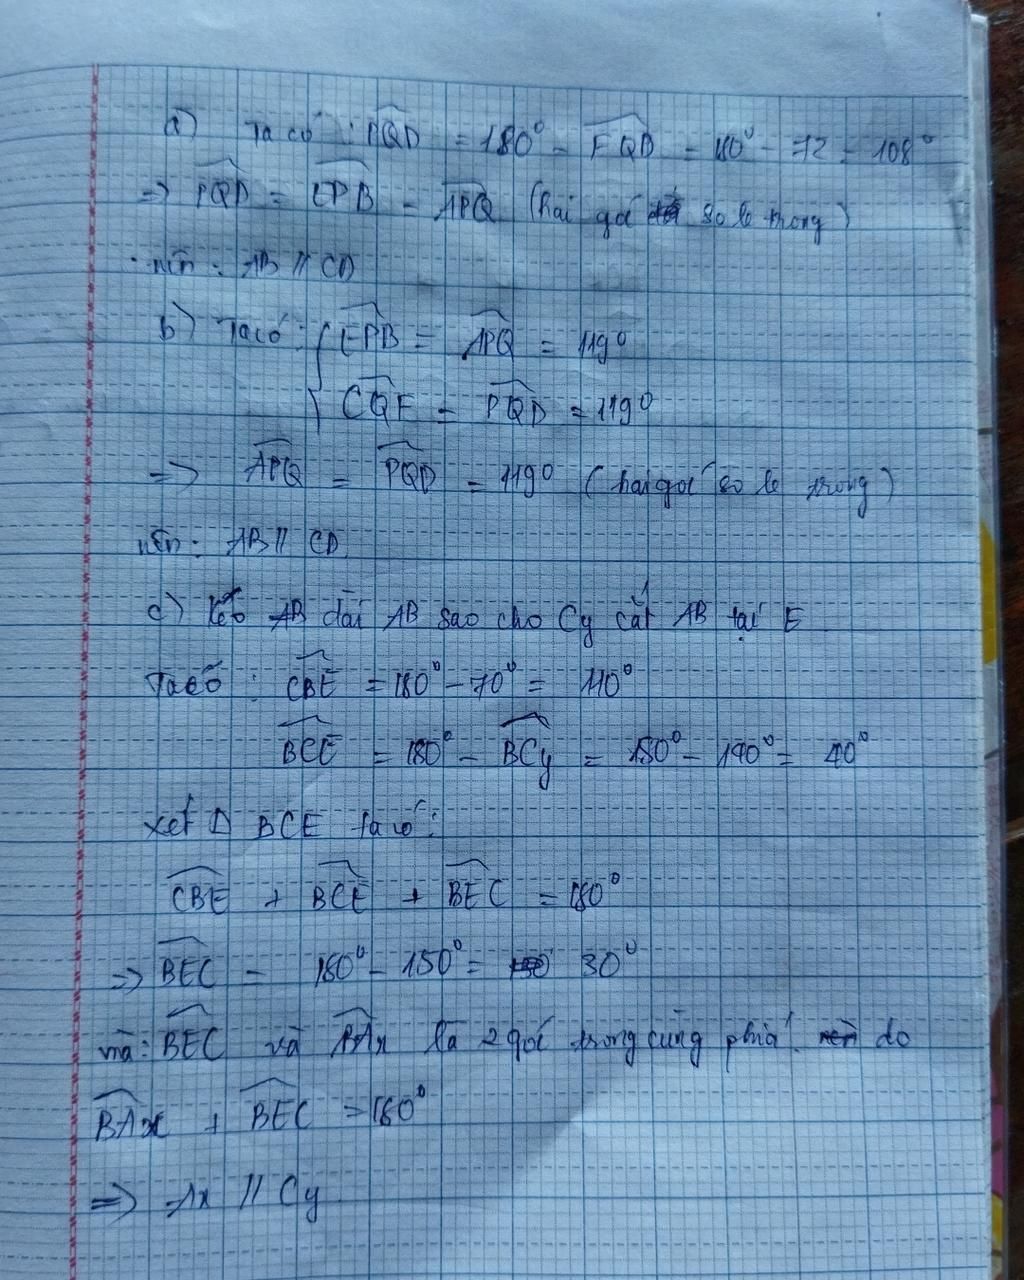 a) Ta có : PQD = 180° - FQD = 180° - 72 = 108°
=> PQD = EPB = APQ (hai góc so le trong)
nên : AB // CD
b) Ta có : { EPB = APQ = 119°
CQF = PQD = 119°
=> APQ = PQD = 119° (hai góc so le trong)
nên : AB // CD
c) Kéo AB dài AB sao cho Cy cắt AB tại E
Ta có : CBE = 180° - 70° = 110°
BCE = 180° - BCy = 180° - 140° = 40°
xét Δ BCE ta có :
CBE + BCE + BEC = 180°
=> BEC = 180° - 150° = 30°
mà : BEC và BAx là 2 góc trong cùng phía do
BAx + BEC = 180°
=> Ax // Cy